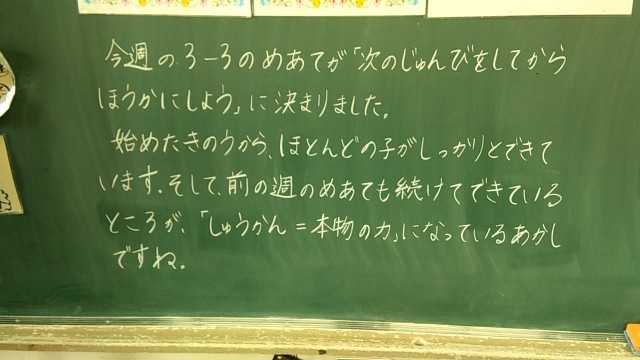 今週の3-3のめあてが「次のじゅんびをしてから
ほうかにしよう」に決まりました。
始めたきのうから、ほとんどの子がしっかりとできて
います。そして、前の週のめあても続けてできている
ところが、「しゅうかん=本物の力」になっているあかし
ですね。